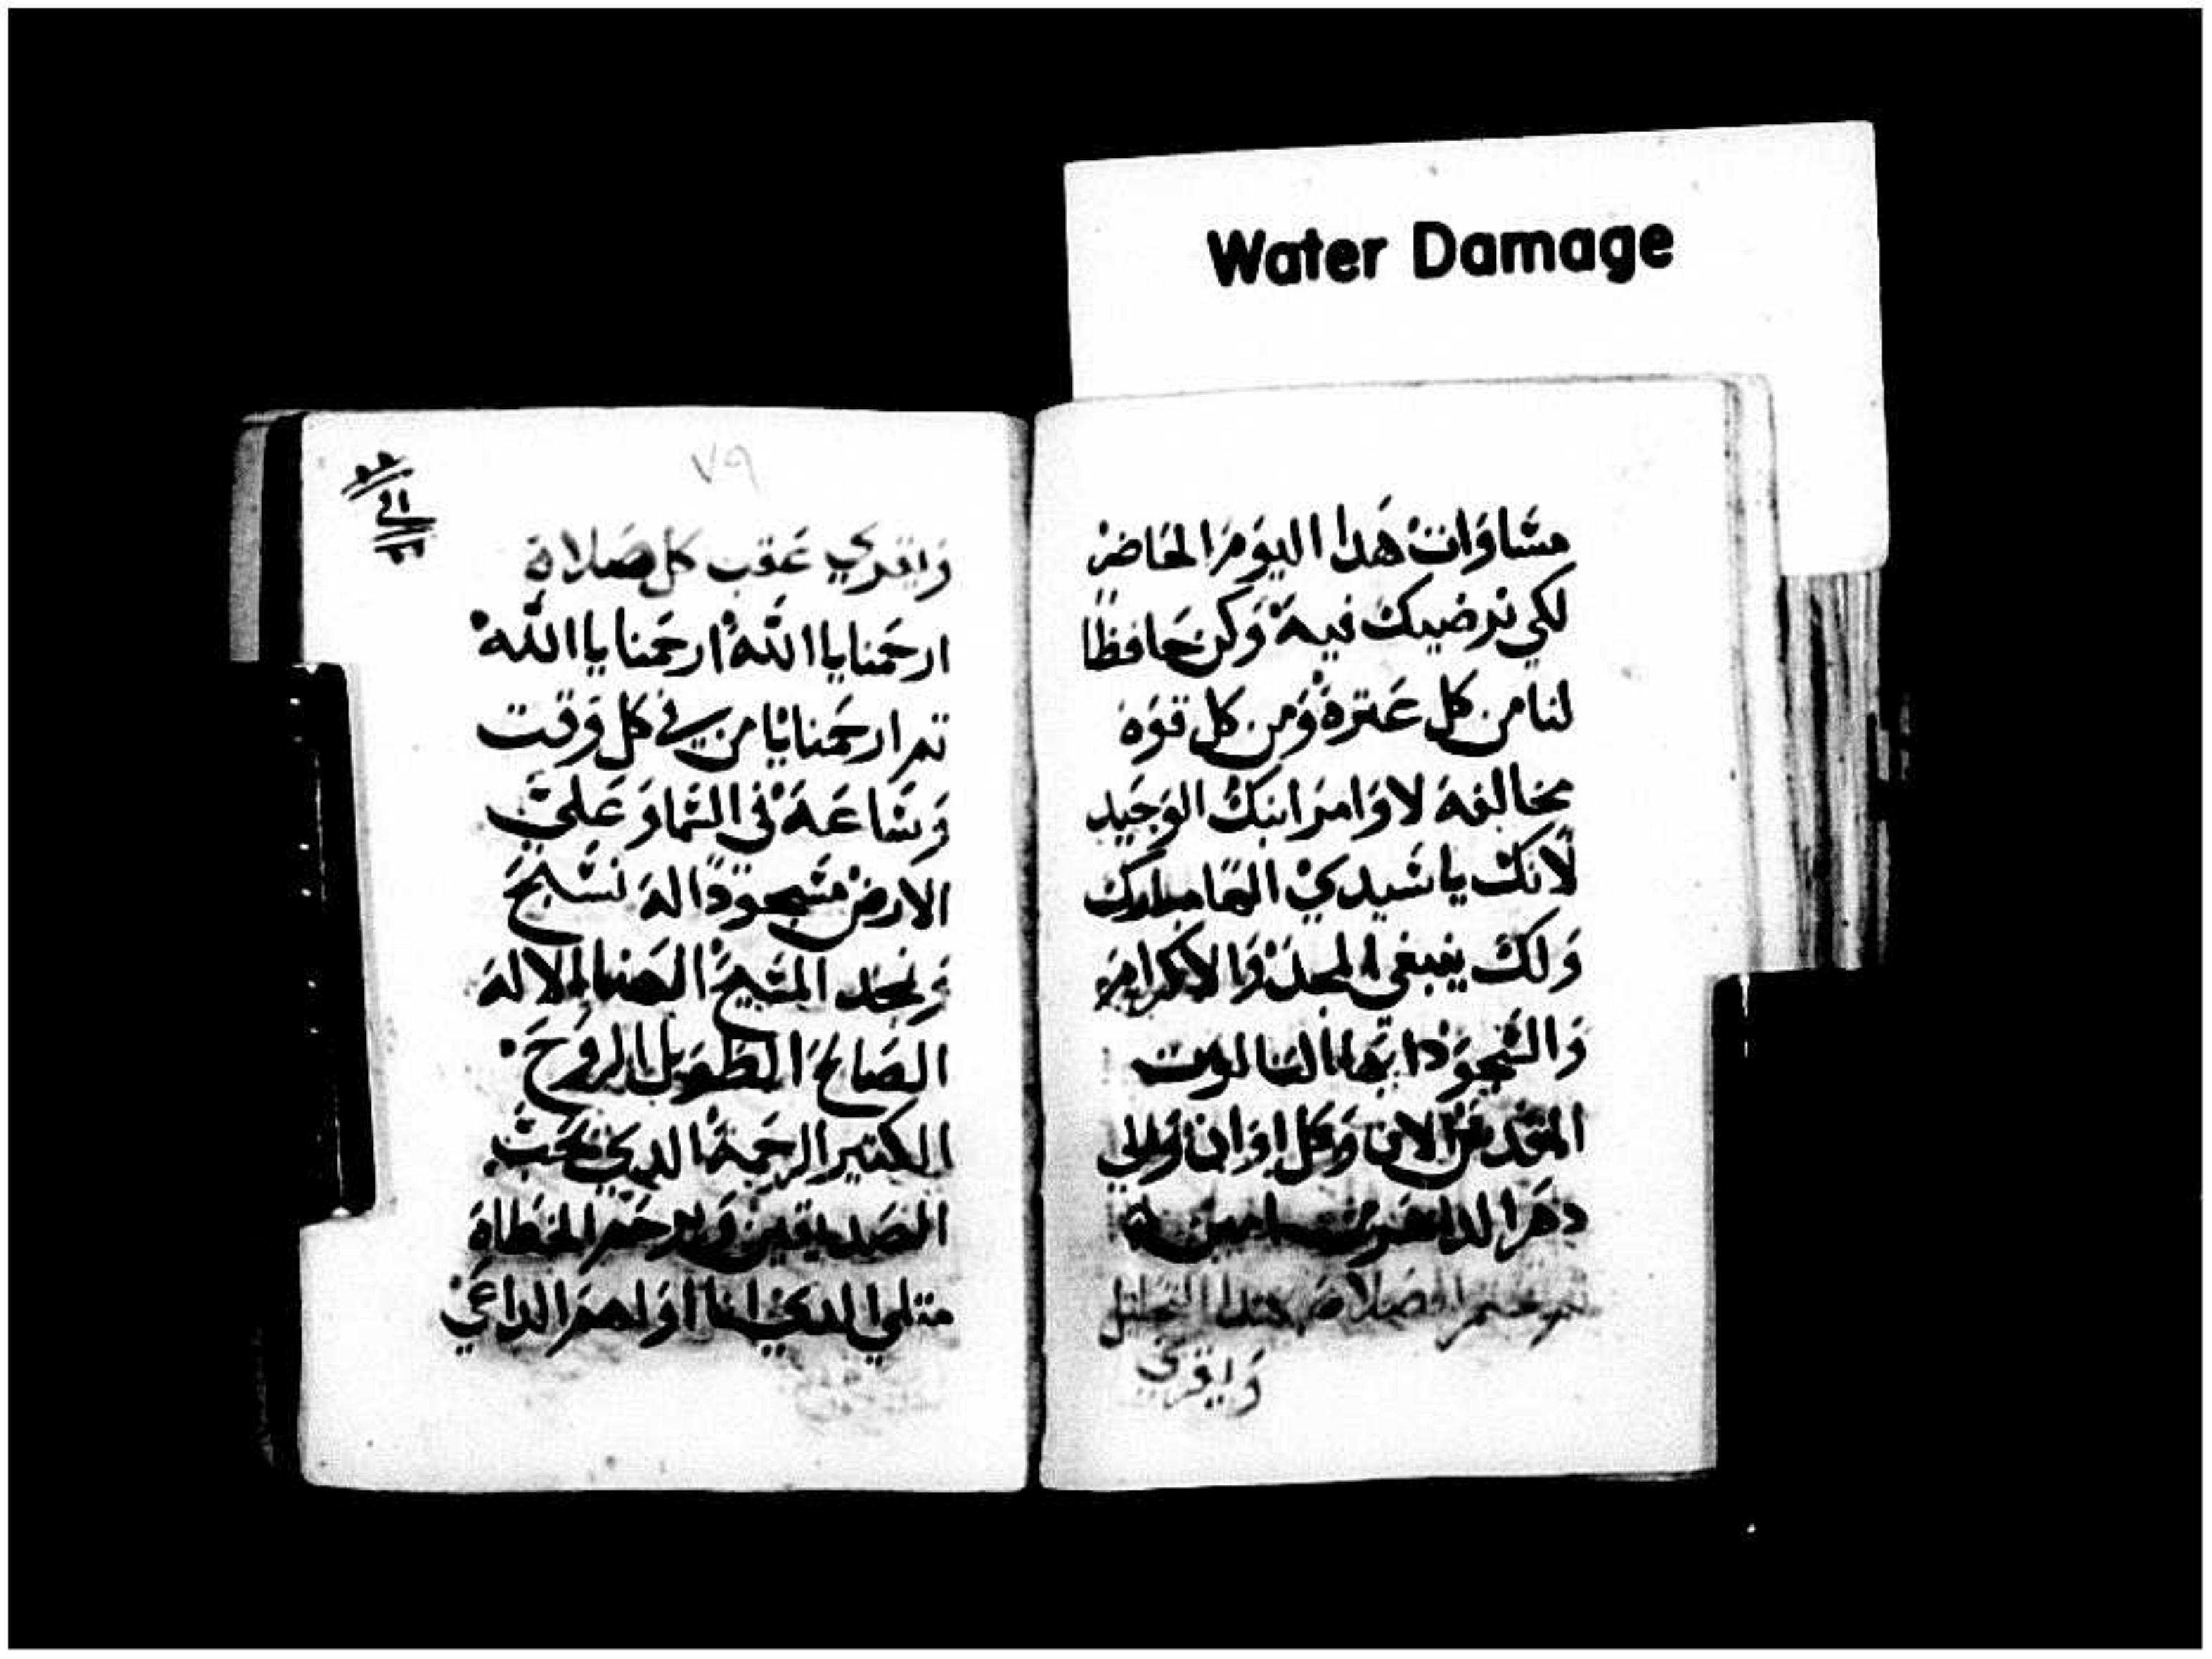 Water Damage
مساوات هدا اليوم الحاضر
لكي نرضيك فيه وكن حافظا
لنا من كل عترة ومن كل قوة
مخالفة لاوامر ابنك الوحيد
لانك يا سيدي الهنا مبارك
ولك ينبغي المجد والاكرام
والسجود ايها التالوت
المقدس الان وكل اوان والي
دهر الداهرين امين
الصلاة
وايقري
٧٩
وايقري عقب كل صلاة
ارحمنا يا الله ارحمنا يا الله
تم ارحمنا يا من في كل وقت
وساعة في السما وعلي
الارض مسجودا له نسبح
ونمجد المسيح الهنا الاله
الصالح الطويل الروح
الكتير الرحمة الدي يحب
الصديقين ويرحم الخطاة
متلي الدي انا اولهم الداعي